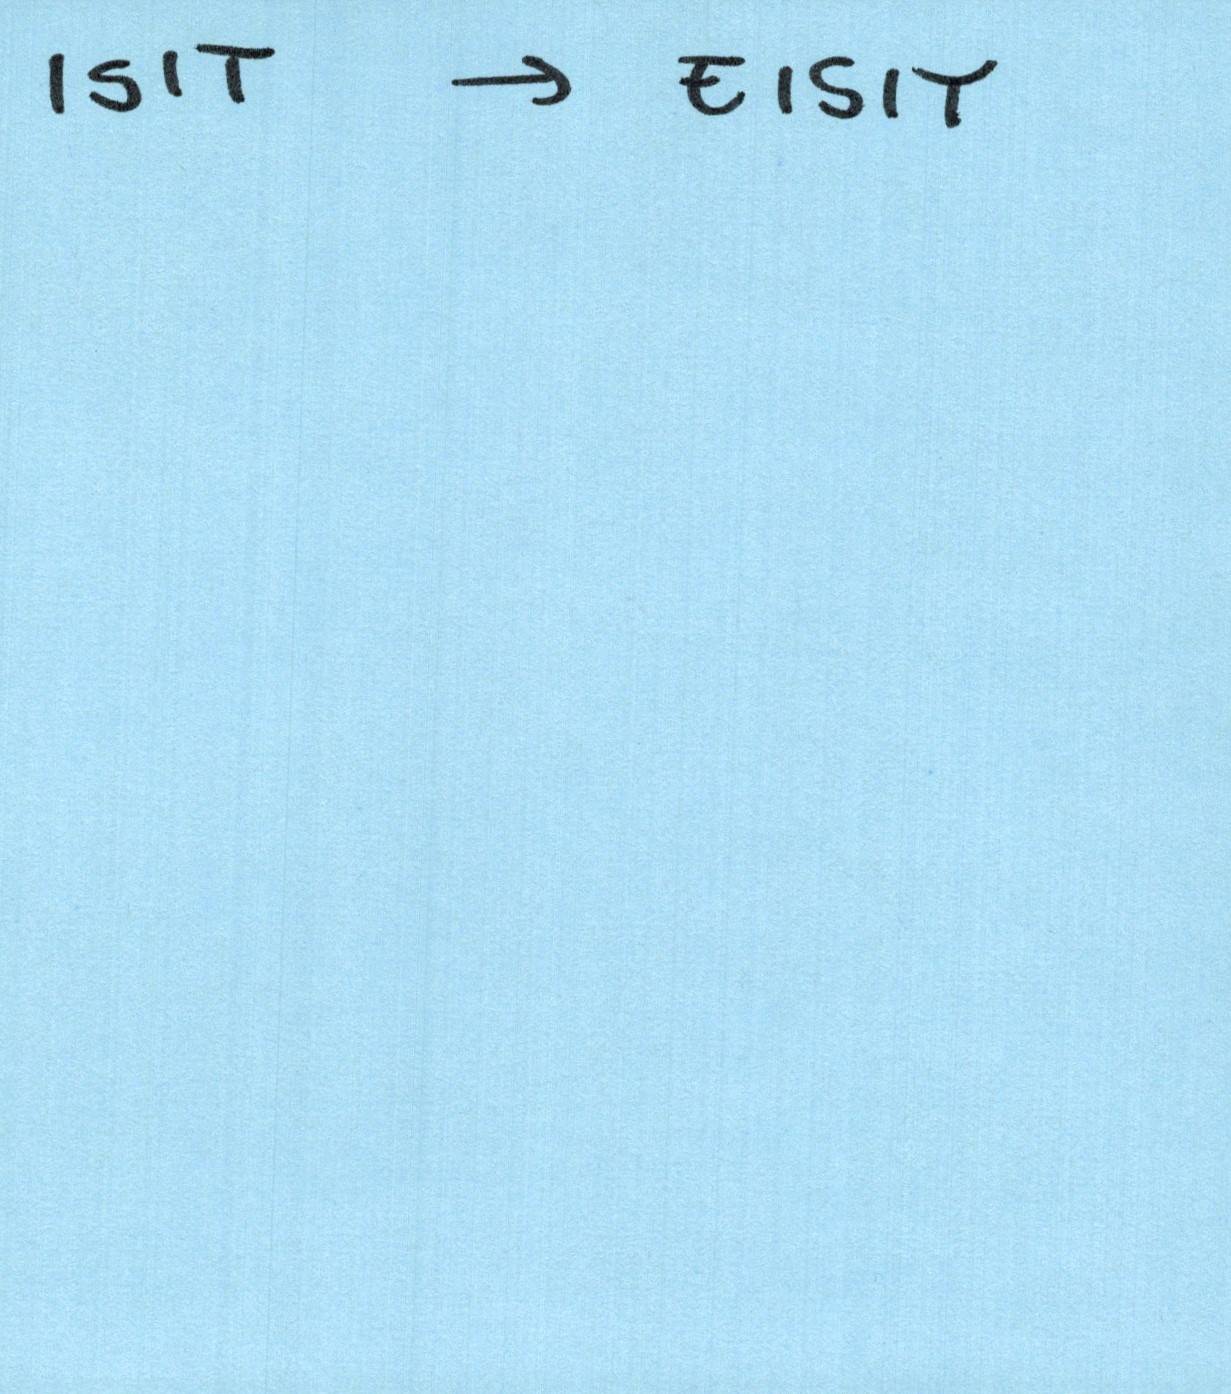 ISIT → EISIT